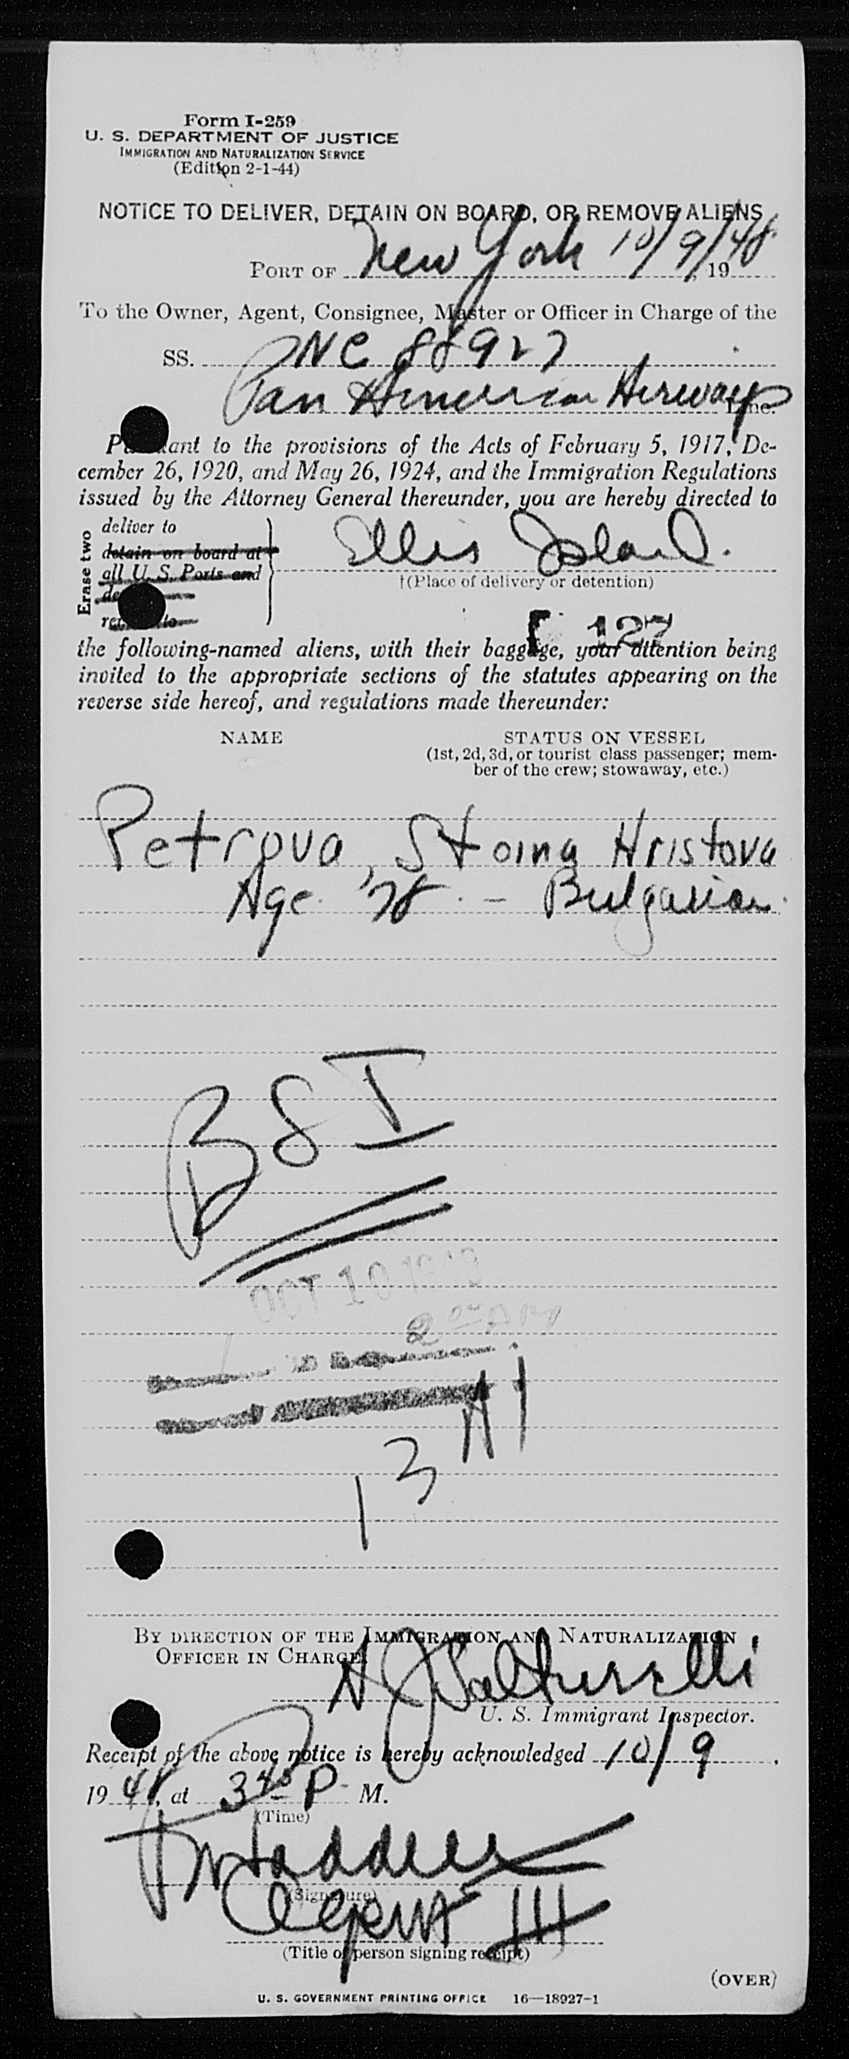 Form I-259
U. S. DEPARTMENT OF JUSTICE
IMMIGRATION AND NATURALIZATION SERVICE
(Edition 2-1-44)
NOTICE TO DELIVER, DETAIN ON BOARD, OR REMOVE ALIENS
PORT OF New York 10/9/48, 19
To the Owner, Agent, Consignee, Master or Officer in Charge of the
SS. NC 88927
Pan American Airways Line.
Pursuant to the provisions of the Acts of February 5, 1917, De-
cember 26, 1920, and May 26, 1924, and the Immigration Regulations
issued by the Attorney General thereunder, you are hereby directed to
Erase two
deliver to
detain on board at
all U. S. Ports and
Ellis Island.
†(Place of delivery or detention)
127
the following-named aliens, with their baggage, your attention being
invited to the appropriate sections of the statutes appearing on the
reverse side hereof, and regulations made thereunder:
NAME
STATUS ON VESSEL
(1st, 2d, 3d, or tourist class passenger; mem-
ber of the crew; stowaway, etc.)
Petrova, Stoina Hristova
Age 78 - Bulgarian.
BSI
OCT 10
13 A1
BY DIRECTION OF THE IMMIGRATION AND NATURALIZATION
OFFICER IN CHARGE:
U. S. Immigrant Inspector.
Receipt of the above notice is hereby acknowledged 10/9,
1948, at 3 45 P. M.
(Time)
(Signature)
Agent III
(Title of person signing receipt)
(OVER)
U. S. GOVERNMENT PRINTING OFFICE 16—18927-1